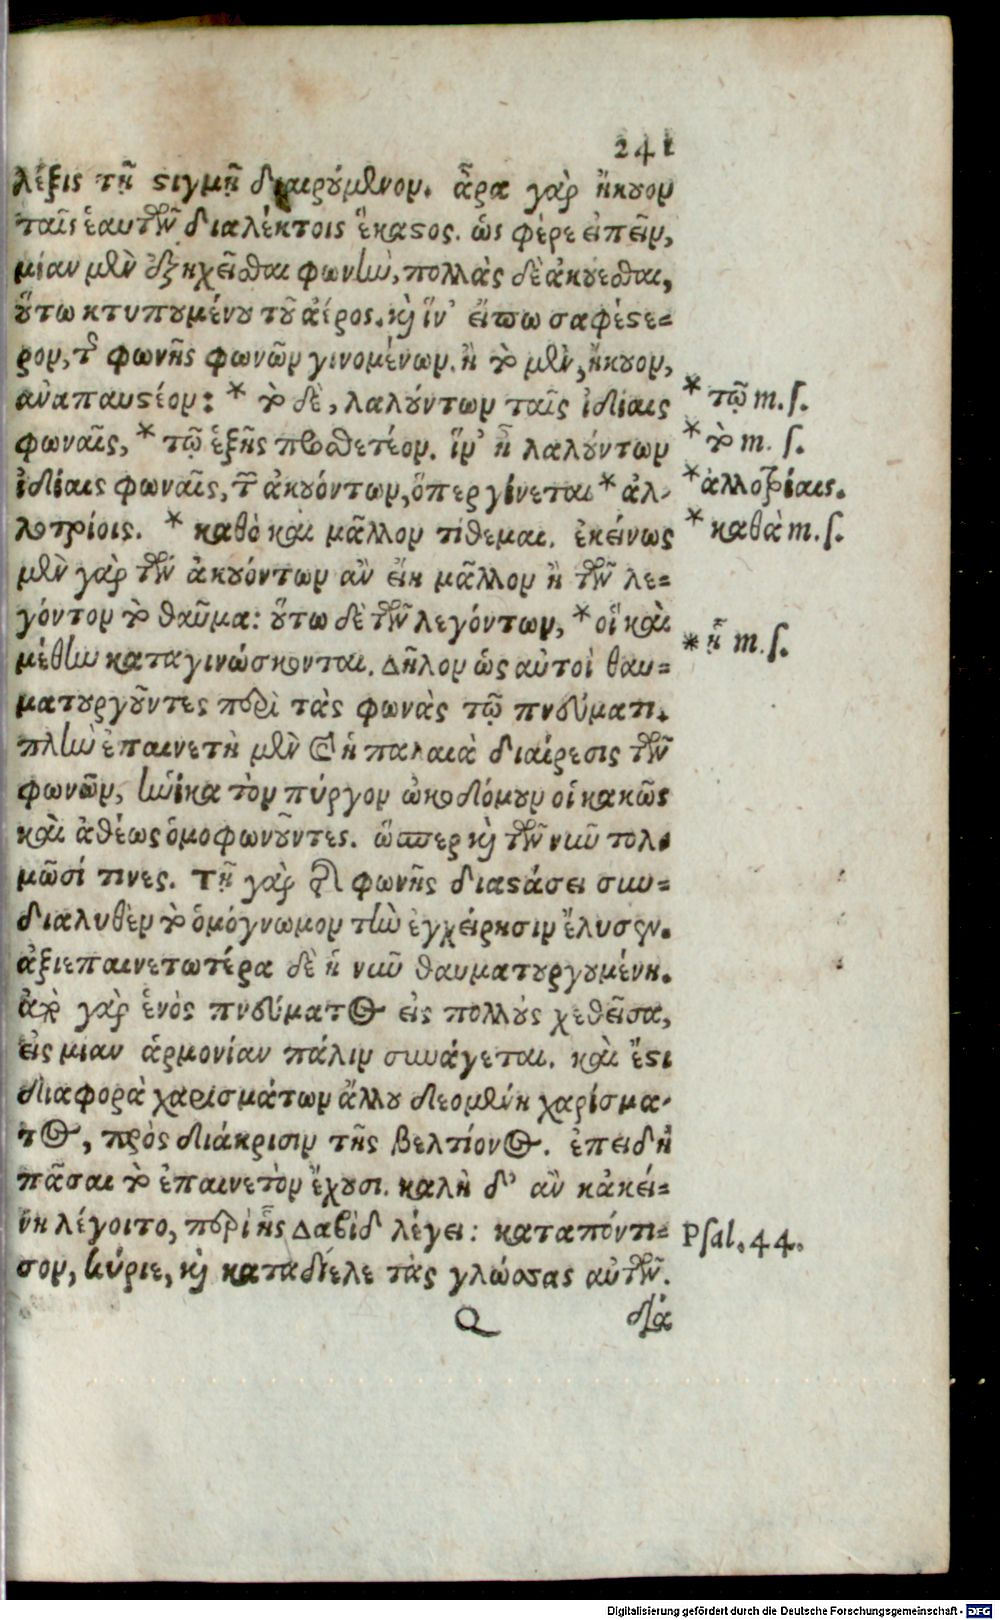 241
λέξις τῇ στιγμῇ διαιρούμενον. ἆρα γὰρ ἤκουον
ταῖς ἑαυτῶν διαλέκτοις ἕκαστος. ὡς φέρε εἰπεῖν,
μίαν μὲν ἐξηχεῖσθαι φωνὴν, πολλὰς δὲ ἀκούεσθαι,
οὕτω κτυπουμένου τοῦ ἀέρος. καὶ ἵν' εἴπω σαφέστε-
ρον, τῆς φωνῆς φωνῶν γινομένων. ἢ τὸ μὲν, ἤκουον,
ἀναπαυστέον: * τὸ δὲ, λαλούντων ταῖς ἰδίαις
* τῷ m. s.
φωναῖς, * τῷ ἑξῆς προσθετέον. ἵν' ᾖ λαλούντων
* τὸ m. s.
ἰδίαις φωναῖς, τῶν ἀκουόντων, ὅπερ γίνεται * ἀλ-
* ἀλλοτρίαις.
λοτρίοις. * καθὸ καὶ μᾶλλον τίθεμαι. ἐκείνως
* καθὰ m. s.
μὲν γὰρ τῶν ἀκουόντων ἂν εἴη μᾶλλον ἢ τῶν λε-
γόντον τὸ θαῦμα: οὕτω δὲ τῶν λεγόντων, * οἳ καὶ
* ᾗ m. s.
μέθην καταγινώσκονται. Δῆλον ὡς αὐτοὶ θαυ-
ματουργοῦντες περὶ τὰς φωνὰς τῷ πνεύματι.
πλὴν ἐπαινετὴ μὲν καὶ ἡ παλαιὰ διαίρεσις τῶν
φωνῶν, ἡνίκα τὸν πύργον ᾠκοδόμουν οἱ κακῶς
καὶ ἀθέως ὁμοφωνοῦντες. ὥσπερ καὶ τῶν νῦν τολ-
μῶσί τινες. Τῇ γὰρ τῆς φωνῆς διαστάσει συν-
διαλυθὲν τὸ ὁμόγνωμον τὴν ἐγχείρησιν ἔλυσεν.
ἀξιεπαινετωτέρα δὲ ἡ νῦν θαυματουργουμένη.
ἀπὸ γὰρ ἑνὸς πνεύματος εἰς πολλοὺς χεθεῖσα,
εἰς μιαν ἁρμονίαν πάλιν συνάγεται. καὶ ἔστι
διαφορὰ χαρισμάτων ἄλλου δεομένη χαρίσμα-
τος, πρὸς διάκρισιν τῆς βελτίονος. ἐπειδὴ
πᾶσαι τὸ ἐπαινετὸν ἔχουσι. καλὴ δ' ἂν κἀκεί-
νη λέγοιτο, περὶ ἧς Δαβὶδ λέγει: καταπόντι-
Psal. 44.
σον, κύριε, καὶ καταδίελε τὰς γλώσσας αὐτῶν.
Q
διὰ
Digitalisierung gefördert durch die Deutsche Forschungsgemeinschaft - DFG